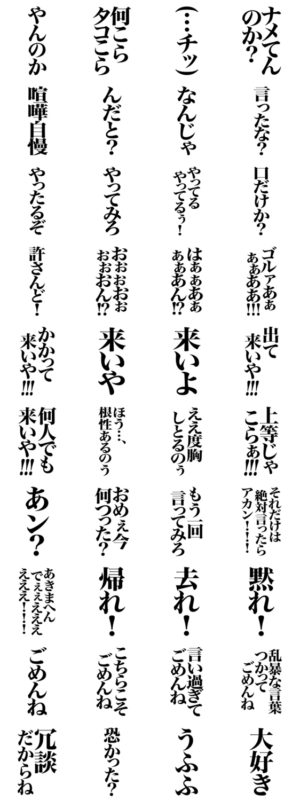 ナメてん
のか?
(…チッ)
何こら
タコこら
やんのか
言ったな?
なんじゃ
んだと?
喧嘩自慢
口だけか?
やってる
やってるぅ!
やってみろ
やったるぞ
ゴルァあぁ
ぁぁああ!!!
はぁぁあぁ
ぁぁあん!?
おぉぉおぉ
ぉぉおん!?
許さんど!
出て
来いや!!!
来いよ
来いや
かかって
来いや!!!
上等じゃ
こらぁ!!!
ええ度胸
しとるのぅ
ほう…、
根性あるのぅ
何人でも
来いや!!!
それだけは
絶対言ったら
アカン!!!
もう一回
言ってみろ
おめぇ今
何つった?
あン?
黙れ!
去れ!
帰れ!
あきまへん
でぇぇええぇ
えええ!!!
乱暴な言葉
つかって
ごめんね
言い過ぎて
ごめんね
こちらこそ
ごめんね
ごめんね
大好き
うふふ
恐かった?
冗談
だからね